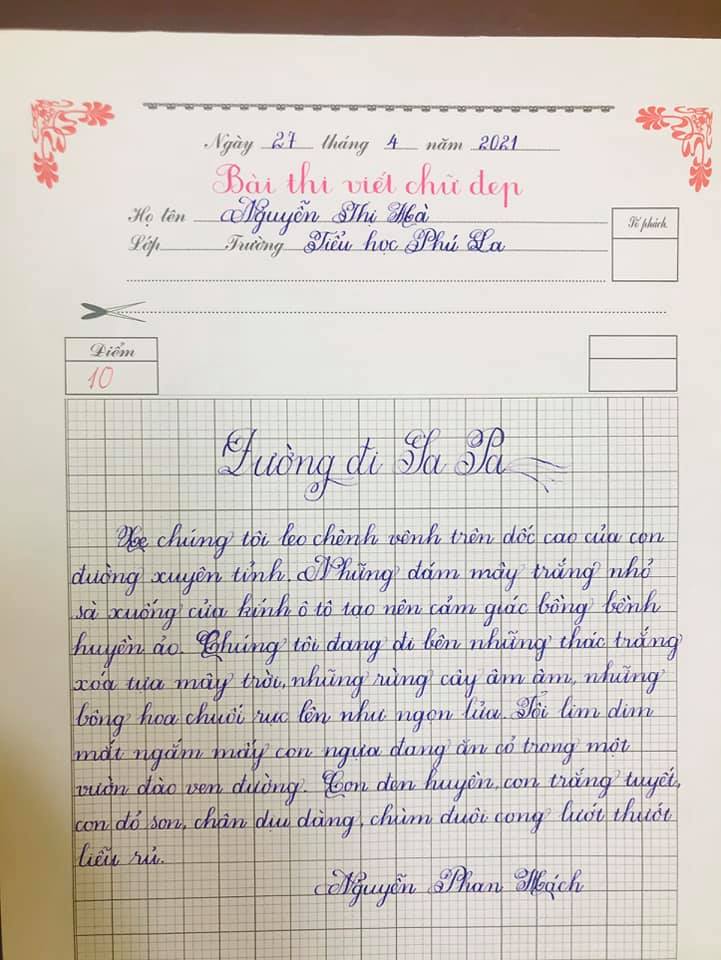 Ngày 27 tháng 4 năm 2021
Bài thi viết chữ đẹp
Họ tên Nguyễn Thị Hà
Lớp Trường Tiểu học Phú La
Số phách
Điểm
10
Đường đi Sa Pa
Xe chúng tôi leo chênh vênh trên dốc cao của con
đường xuyên tỉnh. Những đám mây trắng nhỏ
sà xuống cửa kính ô tô tạo nên cảm giác bồng bềnh
huyền ảo. Chúng tôi đang đi bên những thác trắng
xóa tựa mây trời, những rừng cây âm âm, những
bông hoa chuối rực lên như ngọn lửa. Tôi lim dim
mắt ngắm mấy con ngựa đang ăn cỏ trong một
vườn đào ven đường. Con đen huyền, con trắng tuyết,
con đỏ son, chân dịu dàng, chùm đuôi cong lướt thướt
liễu rủ.
Nguyễn Phan Hách